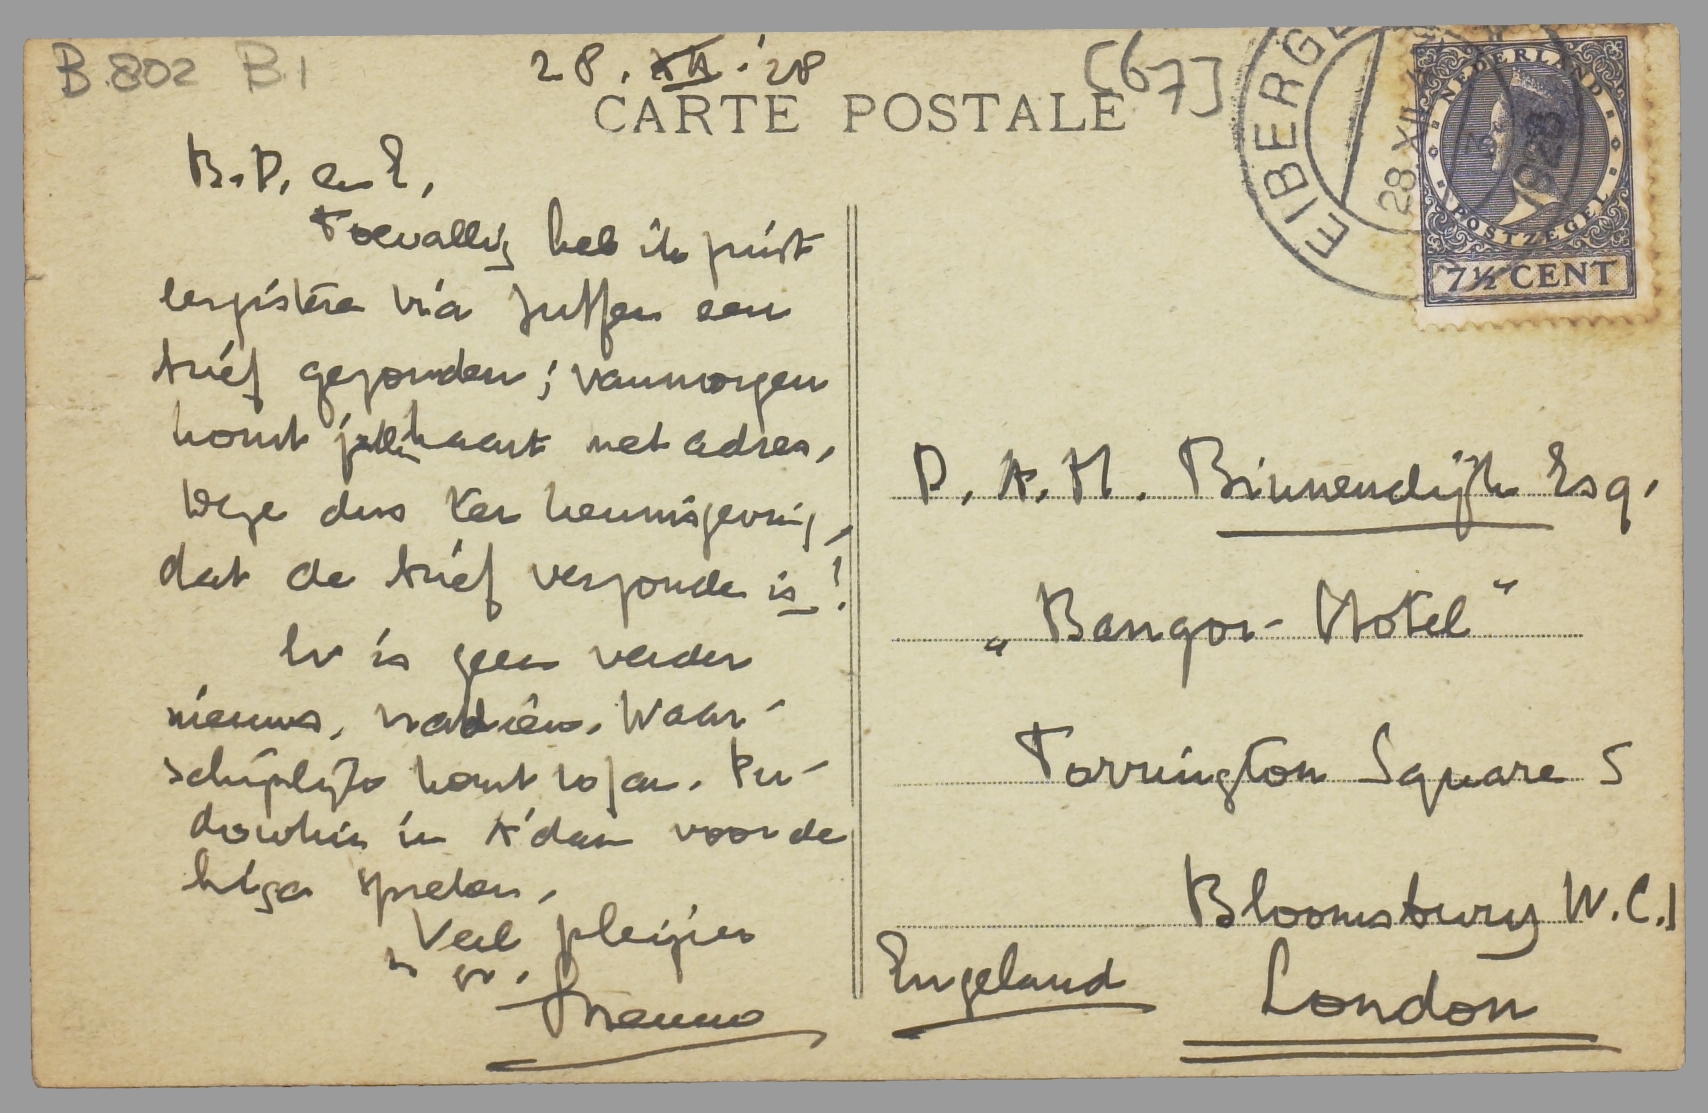 B.802 B.1
28.XII.'28
[67]
CARTE POSTALE
EIBERGEN
28 XII
1928
NEDERLAND
POSTZEGEL
7½ CENT
B.D. en E,
Toevallig heb ik juist
eergisteren via een
brief gezonden; vanmorgen
komt jullie kaart met adres,
Wege dus ter kennisgeving,
dat de brief verzonden is!
Er is geen verder
nieuws, Waar-
schijnlijk komt
in A'dam voor de
spreken.
Veel plezier
gr.
Menno
D. A. M. Binnendijk Esq.
„Bangor-Hotel"
Torrington Square 5
Bloomsbury W.C.1
Engeland London